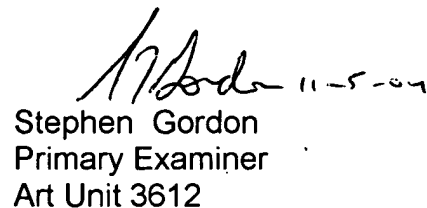 S Gordon 11-5-04
Stephen Gordon
Primary Examiner
Art Unit 3612